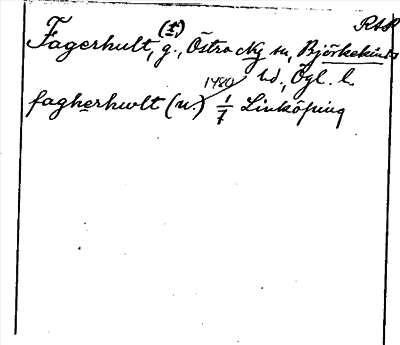 RAP
Fagerhult, (t) g., Östra Ny sn, Björkekinds
hd., Ögl. l.
fagherhwlt (u.) 1480 1/7 Linköping